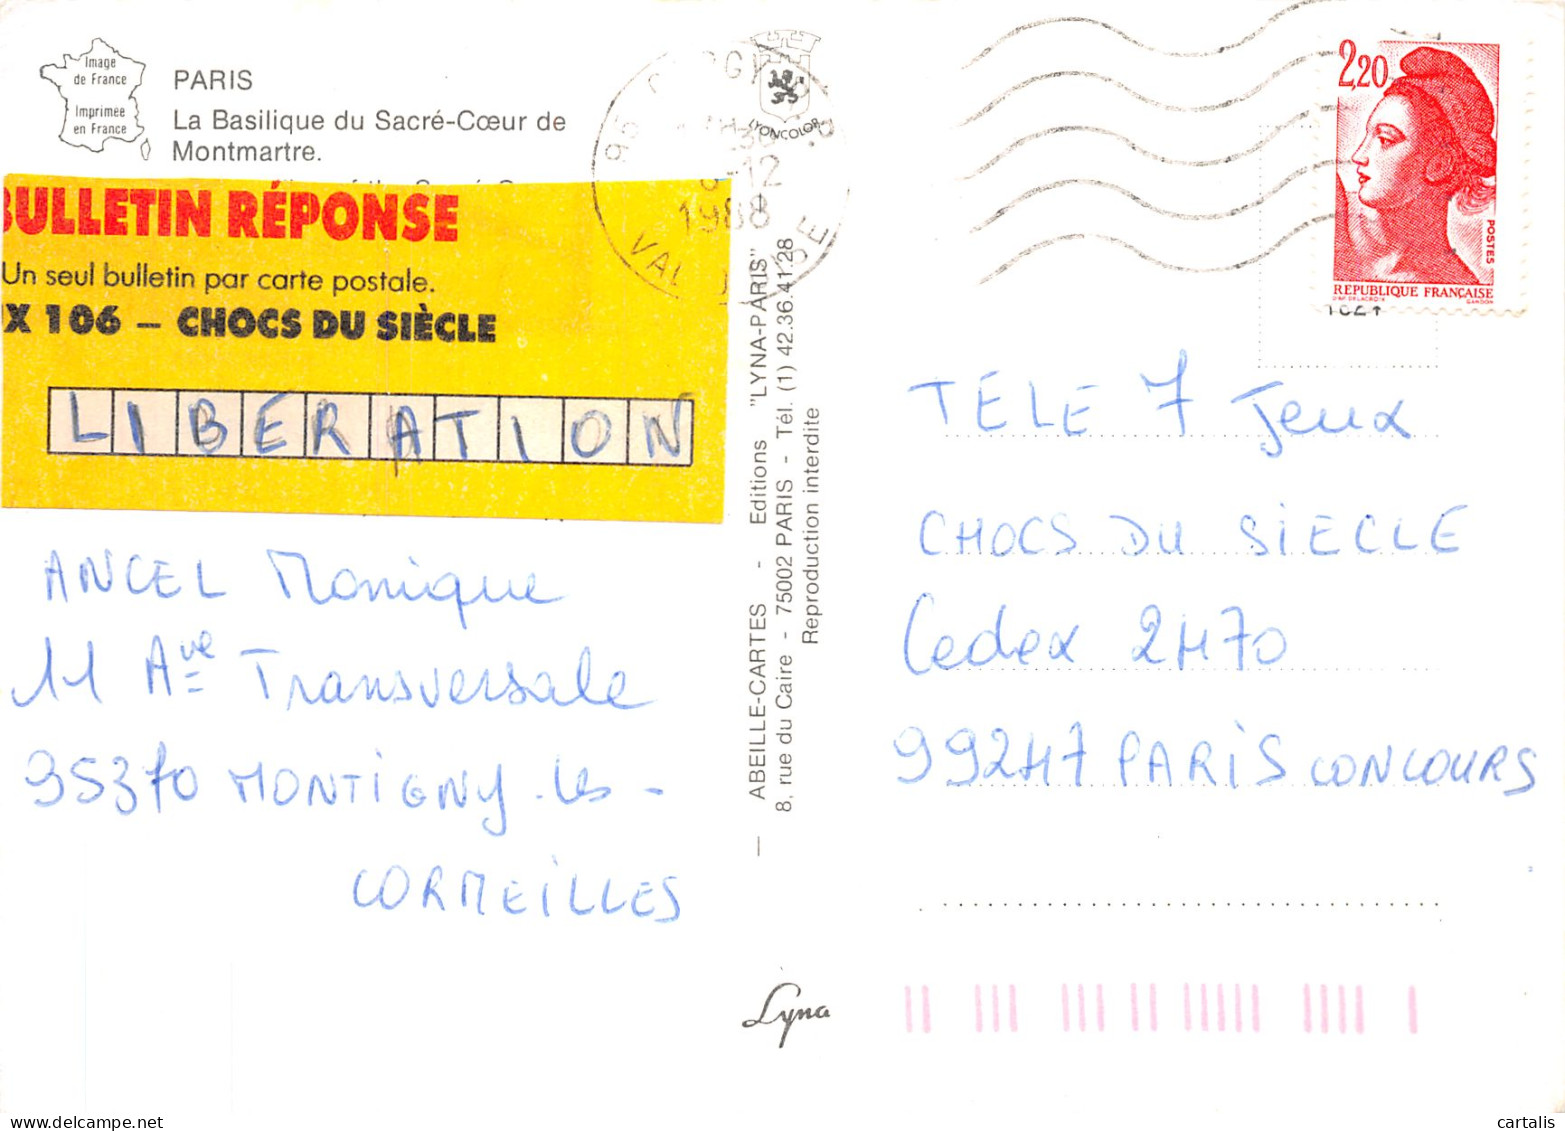 Image
de France
Imprimée
en France
PARIS
La Basilique du Sacré-Cœur de
Montmartre.
BULLETIN RÉPONSE
Un seul bulletin par carte postale.
X 106 – CHOCS DU SIÈCLE
LIBERATION
ANCEL Monique
11 Ave Transversale
95370 MONTIGNY-les-
CORMEILLES
LYONCOLOR
95
12
1988
VAL OISE
ABEILLE-CARTES - Editions "LYNA-PARIS"
8, rue du Caire - 75002 PARIS - Tél. (1) 42.36.41.28
Reproduction interdite
Lyna
2,20
POSTES
REPUBLIQUE FRANÇAISE
D'AP. DELACROIX GANDON
TELE 7 Jeux
CHOCS DU SIECLE
Cedex 2470
99247 PARIS CONCOURS
cartalis